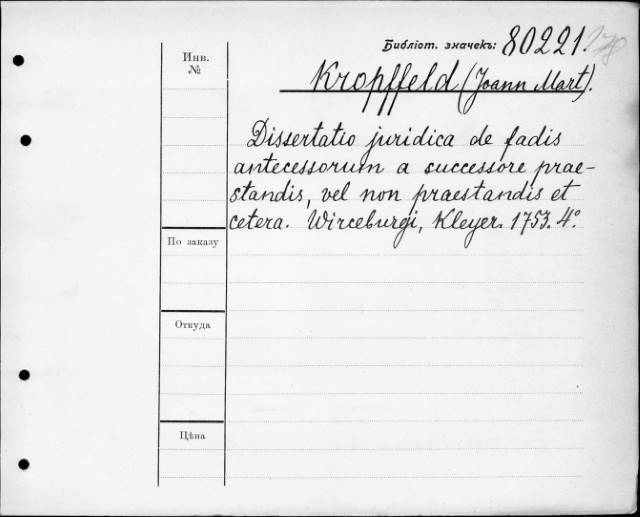 Библіот. значекъ: 80221.
Инв.
№
Kropffeld (Joann Mart).
Dissertatio juridica de fadis
antecessorum a successore prae-
standis, vel non praestandis et
cetera. Wirceburgi, Kleyer. 1753. 4°.
По заказу
Откуда
Цѣна